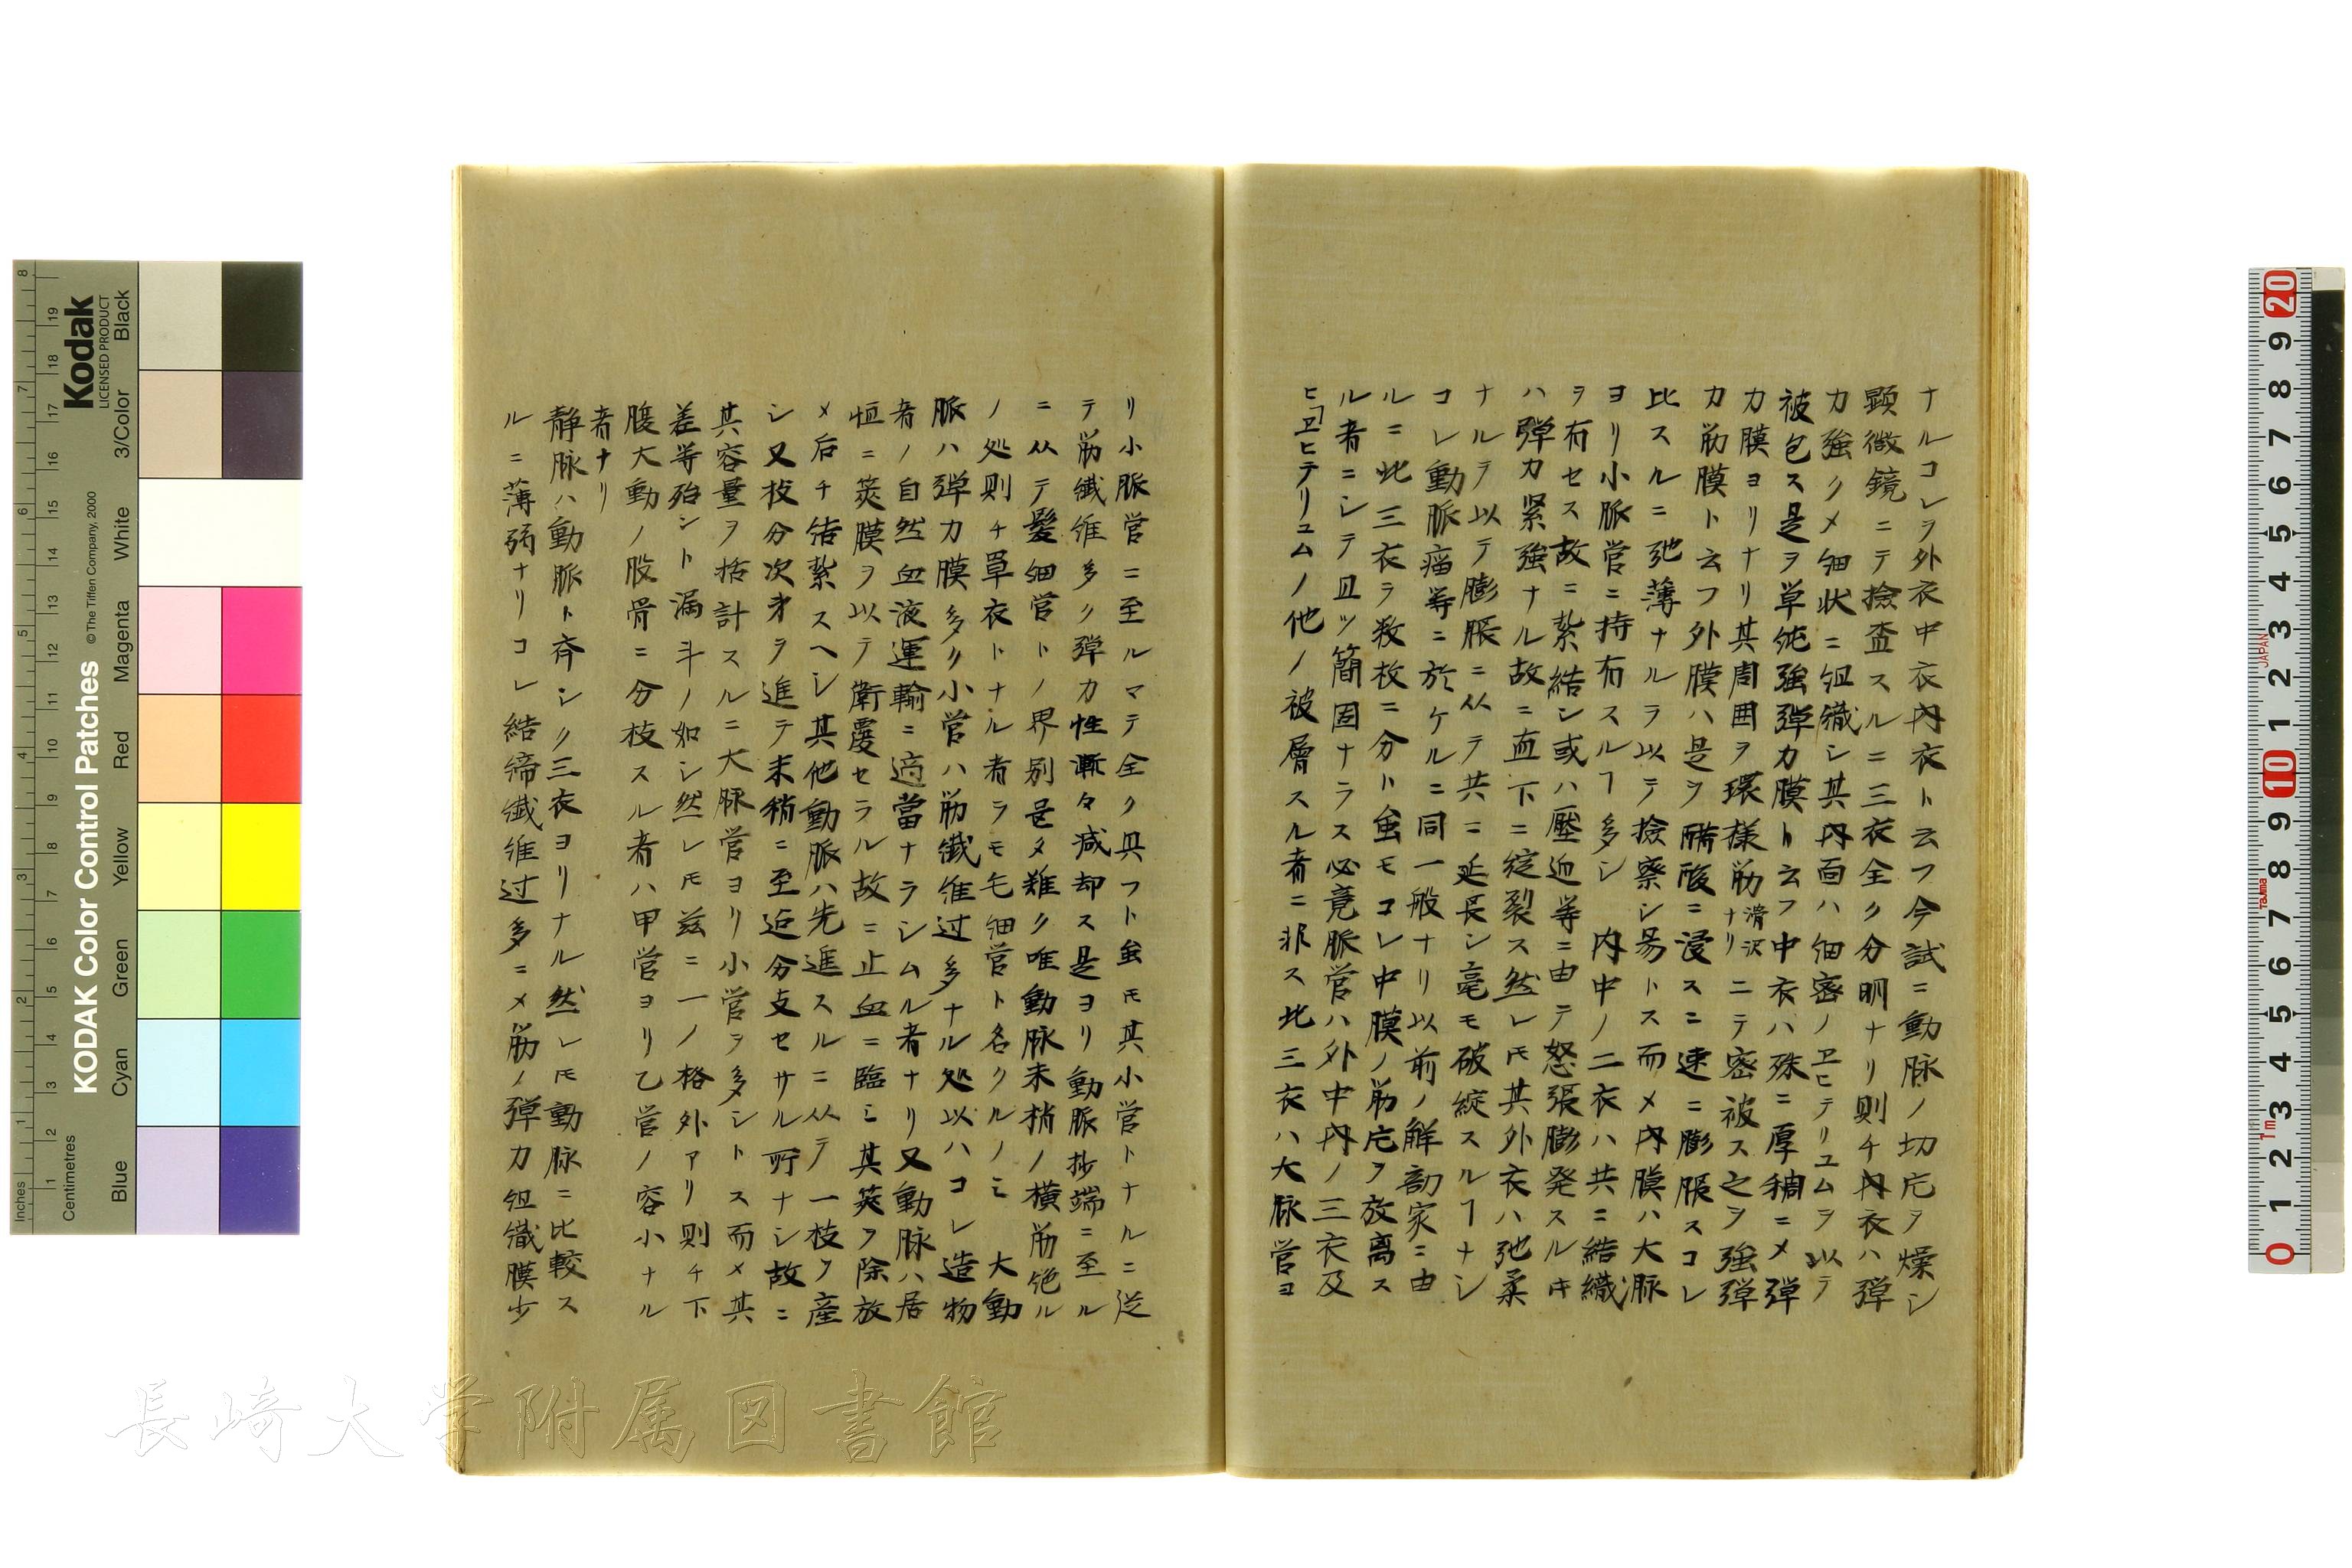 ナルコレヲ外衣中衣内衣ト云フ今試ニ動脉ノ切片ヲ燥シ
顕微鏡ニテ撿査スルニ三衣全ク分明ナリ則チ内衣ハ弾
力強クメ細状ニ組織シ其内面ハ細密ノヱヒテリユムヲ以テ
被包ス是ヲ単純強弾力膜ト云フ中衣ハ殊ニ厚稠ニメ弾
力膜ヨリナリ其周囲ヲ環様筋滑沢ナリニテ密被ス之ヲ強弾
力筋膜ト云フ外膜ハ是ヲ醋酸ニ浸スニ速ニ膨脹スコレ
比スルニ弛薄ナルヲ以テ撿察シ易トス而メ内膜ハ大脉
ヨリ小脈管ニ持有スルヿ多シ 内中ノ二衣ハ共ニ結織
ヲ有セス故ニ紮結シ或ハ壓迫等ニ由テ怒張膨発スルキ
ハ弾力緊強ナル故ニ直下ニ綻裂ス然レ𪜈其外衣ハ弛柔
ナルヲ以テ膨脹ニ从テ共ニ延長シ毫モ破綻スルヿナシ
コレ動脈瘤等ニ於ケルニ同一般ナリ以前ノ解剖家ニ由
ルニ此三衣ヲ数枚ニ分ト虽モコレ中膜ノ筋片ヲ放离ス
ル者ニシテ且ツ簡固ナラス必竟脈管ハ外中内ノ三衣及
ヒ「ヱヒテリユムノ他ノ被層スル者ニ非ス此三衣ハ大脉管ヨ
リ小脈管ニ至ルマテ全ク具フト虽𪜈其小管トナルニ従
テ筋繊維多ク弾力性漸々减却ス是ヨリ動脈抄端ニ至ル
ニ从テ髪細管トノ界別甚タ難ク唯動脉末梢ノ横筋絶ル
ノ処則チ単衣トナル者ヲモ毛細管ト名クルノミ 大動
脈ハ弾力膜多ク小管ハ筋繊維过多ナル処以ハコレ造物
者ノ自然血液運輸ニ適當ナラシムル者ナリ又動脉ハ居
恒ニ莢膜ヲ以テ衛護セラル故ニ止血ニ臨ミ其莢ヲ除放
メ后チ結紮スヘシ其他動脈ハ先進スルニ从テ一枝ヲ産
シ又枝分次第ヲ進テ末稍ニ至迄分支セサル所ナシ故ニ
其容量ヲ括計スルニ大脉管ヨリ小管ヲ多シトス而メ其
差等殆ント漏斗ノ如シ然レ𪜈茲ニ一ノ格外アリ則チ下
腹大動ノ股骨ニ分枝スル者ハ甲管ヨリ乙管ノ容小ナル
者ナリ
静脉ハ動脈ト斉シク三衣ヨリナル然レ𪜈動脉ニ比較ス
ルニ薄弱ナリコレ結締繊維过多ニメ筋ノ弾力組織膜少
長崎大学附属図書館
Kodak
LICENSED PRODUCT
KODAK Color Control Patches
© The Tiffen Company, 2000
Inches
Centimetres
Blue
Cyan
Green
Yellow
Red
Magenta
White
3/Color
Black
JAPAN
Tajima